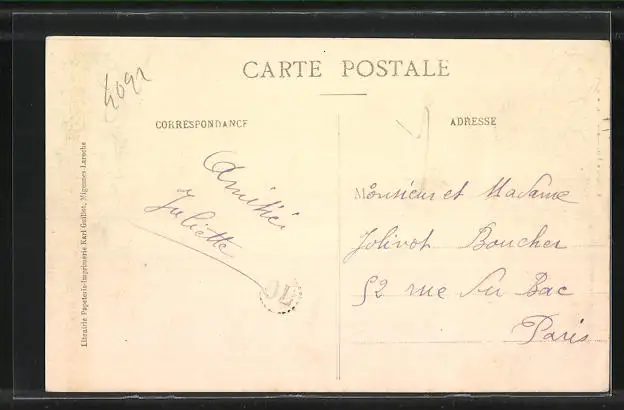 4092
CARTE POSTALE
CORRESPONDANCE
ADRESSE
Amitié
Juliette
OL
Monsieur et Madame
Jolivot Boucher
52 rue du Bac
Paris
Librairie Papeterie-Imprimerie Karl Guillot, Migennes-Laroche